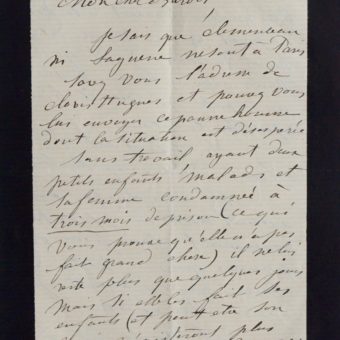 Mon cher
je sais que Clemenceau
ni Laguerre ne sont à Paris
savez vous l'adresse de
clovis Hugues et pouvez vous
lui envoyer ce pauvre homme
dont la situation est désespérée
sans travail ayant deux
petits enfants malades et
sa femme condamnée à
trois mois de prison (ce qui
vous prouve qu'elle n'a pas
fait grand chose) il ne lui
reste plus que quelques jours
Mais si elle les fait ses
enfants (et peut etre son
plus